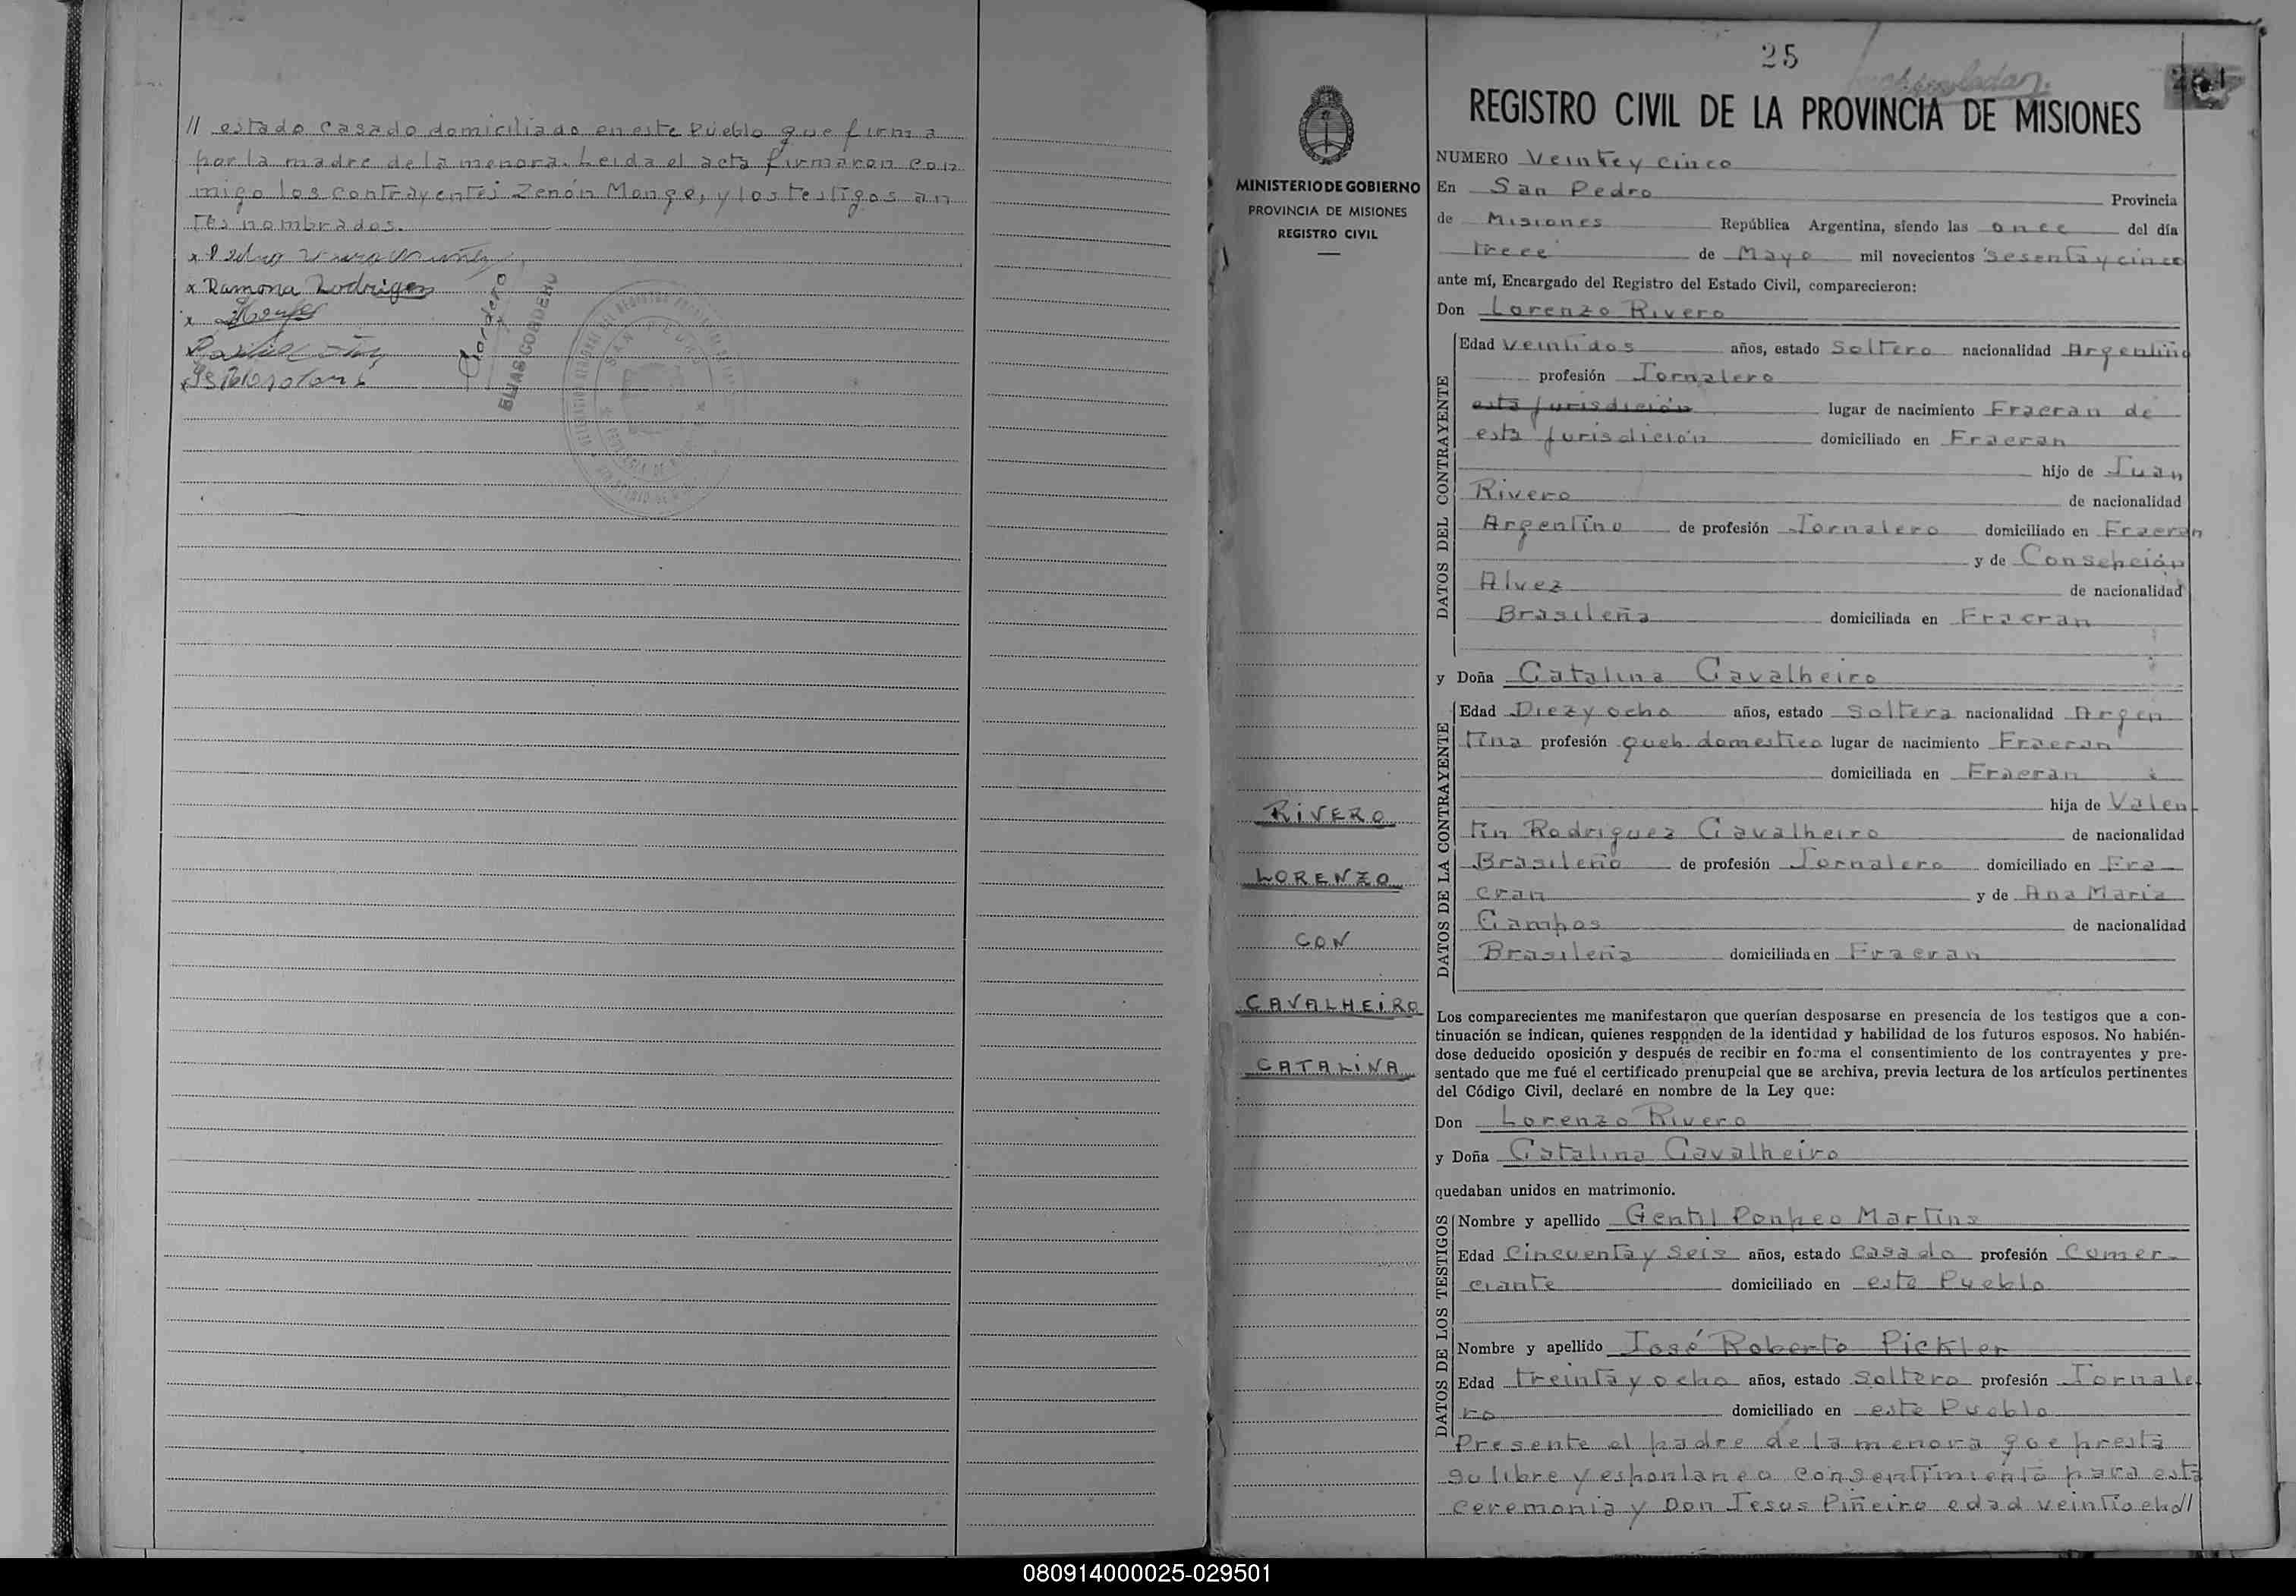 // estado casado domiciliado en este Pueblo que firma
por la madre de la menora. Leida el acta firmaron con
migo los contrayentes Zenón Monge, y los testigos an
tes nombrados.
x Ramona Rodriguez
Cordero
ELIAS CORDERO
SAN PEDRO
25
REGISTRO CIVIL DE LA PROVINCIA DE MISIONES
MINISTERIO DE GOBIERNO
PROVINCIA DE MISIONES
REGISTRO CIVIL
RIVERO
LORENZO
CON
CAVALHEIRO
CATALINA
NUMERO Veintey cinco
En San Pedro Provincia
de Misiones República Argentina, siendo las once del día
trece de Mayo mil novecientos sesenta y cinco
ante mí, Encargado del Registro del Estado Civil, comparecieron:
Don Lorenzo Rivero
DATOS DEL CONTRAYENTE
Edad veintidos años, estado Soltero nacionalidad Argentino
profesión Jornalero
esta jurisdición lugar de nacimiento Fracran de
esta jurisdición domiciliado en Fracran
hijo de Juan
Rivero de nacionalidad
Argentino de profesión Jornalero domiciliado en Fracran
y de Consepción
Alvez de nacionalidad
Brasileña domiciliada en Fracran
y Doña Catalina Cavalheiro
DATOS DE LA CONTRAYENTE
Edad Diez y ocho años, estado soltera nacionalidad Argen
tina profesión queh. domestico lugar de nacimiento Fracran
domiciliada en Fracran
hija de Valen-
tin Rodriguez Cavalheiro de nacionalidad
Brasileño de profesión Jornalero domiciliado en Fra-
cran y de Ana Maria
Campos de nacionalidad
Brasileña domiciliada en Fracran
Los comparecientes me manifestaron que querían desposarse en presencia de los testigos que a con-
tinuación se indican, quienes responden de la identidad y habilidad de los futuros esposos. No habién-
dose deducido oposición y después de recibir en forma el consentimiento de los contrayentes y pre-
sentado que me fué el certificado prenupcial que se archiva, previa lectura de los artículos pertinentes
del Código Civil, declaré en nombre de la Ley que:
Don Lorenzo Rivero
y Doña Catalina Cavalheiro
quedaban unidos en matrimonio.
DATOS DE LOS TESTIGOS
Nombre y apellido Gentil Ponpeo Martins
Edad Cincuenta y seis años, estado casado profesión Comer-
ciante domiciliado en este Pueblo
Nombre y apellido José Roberto Pickler
Edad treinta y ocho años, estado soltero profesión Jornale
ro domiciliado en este Pueblo
Presente el padre de la menora que presta
su libre y espontaneo consentimiento para esta
ceremonia y Don Jesus Piñeiro edad veintiocho//
080914000025-029501